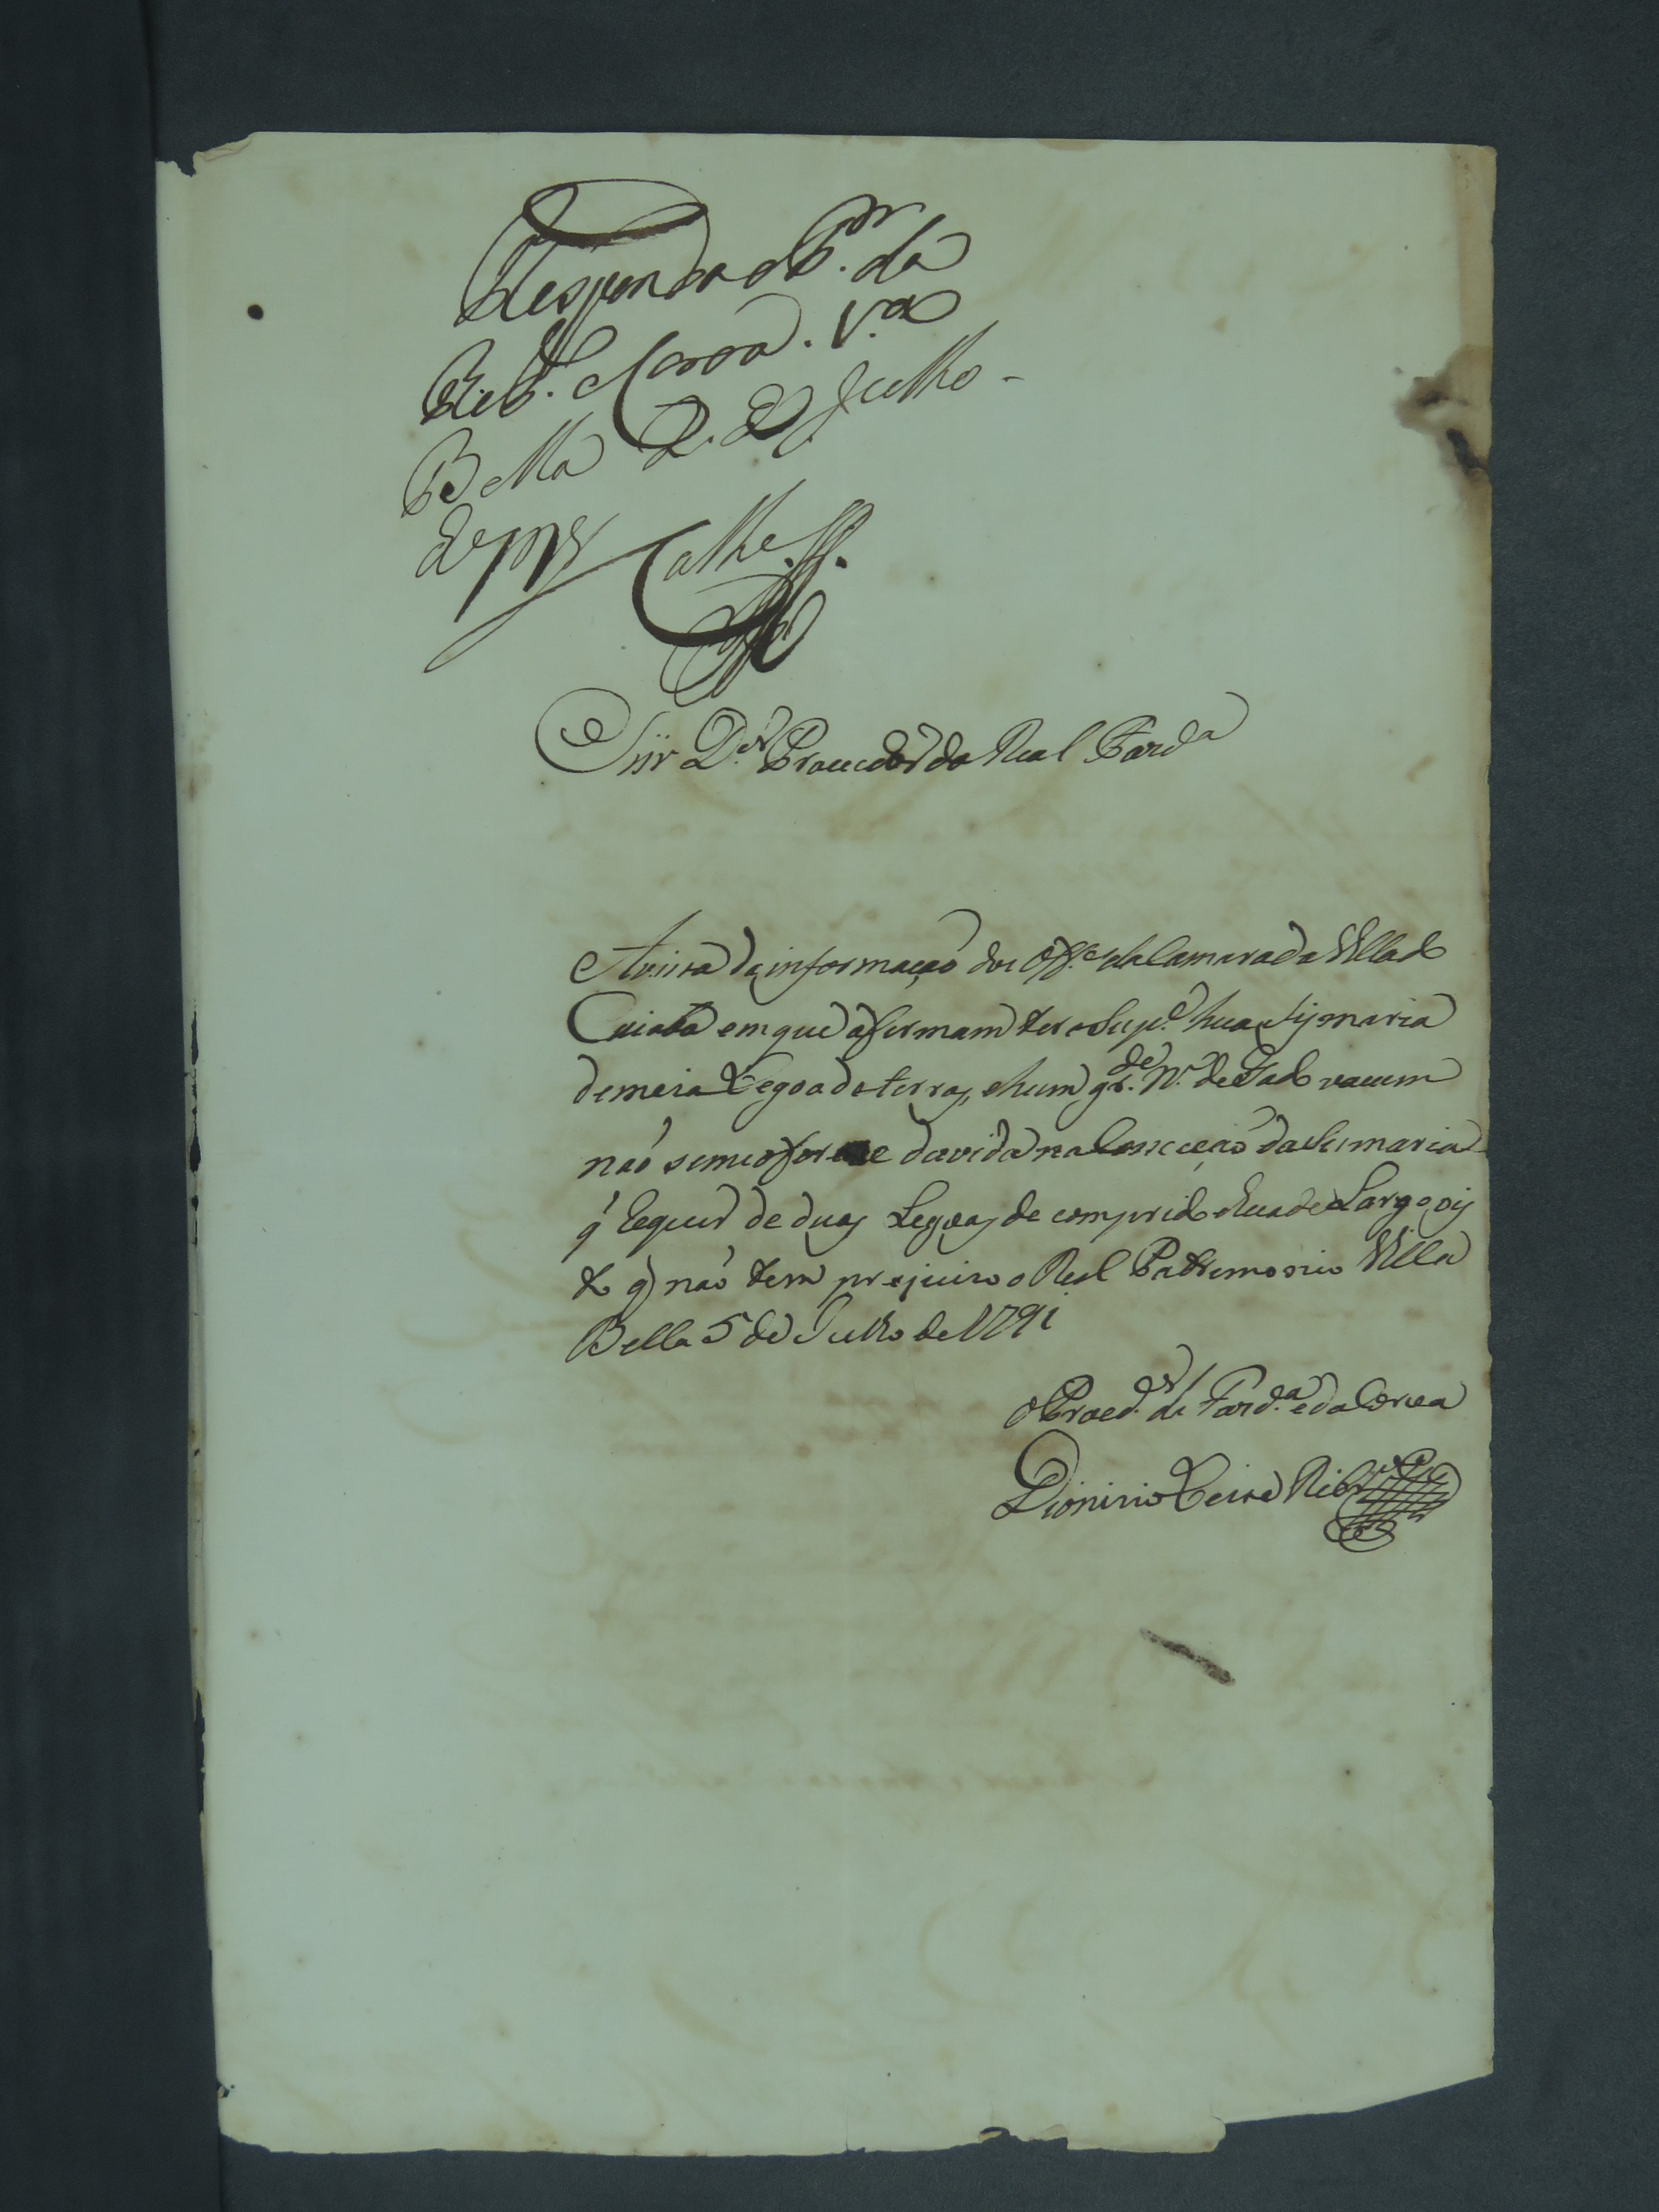 Responda o P.or da
R. F. e Coroa. V.a
Bella 2 de Julho
de 1791
Snr D.or Provedor da Real Fazd.a
A vista da informação dos Off.es da Camara da Villa do
Cuiabá em que afirmam ter o Sup.e hua Sismaria
de meia Legoa de terras, e hum gr.de N.o de Gado vacum
não se me oferece duvida na Conceção da Sismaria
q̃ Requer de duas Legoas de comprido e hua de Largo, vis
to q̃ não tem prejuizo o Real Patrimonio Villa
Bella 5 de Julho de 1791
O Procd.or da Fazd.a e da Coroa
Dionisio Ribr.o